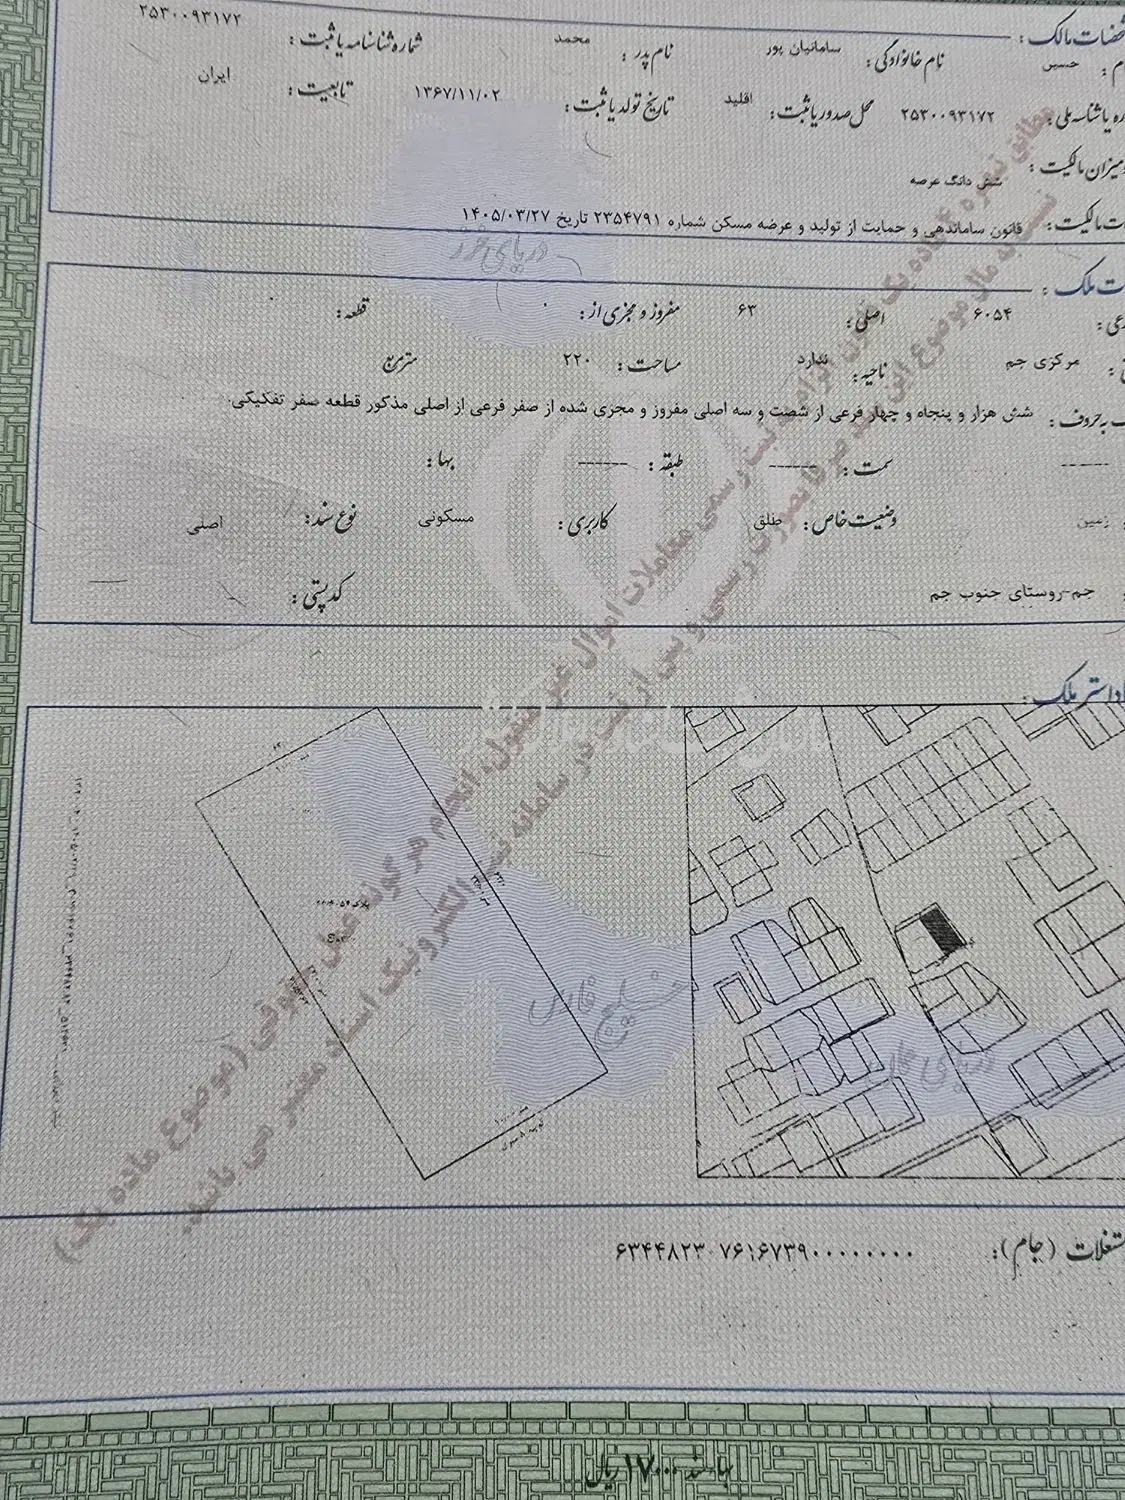 ۲۵۳۰۰۹۳۱۷۲
مشخصات مالک:
حسین نام خانوادگی: سامانیان پور نام پدر: محمد شماره شناسنامه یا ثبت:
شناسه ملی: ۲۵۳۰۰۹۳۱۷۲ محل صدور یا ثبت: اقلید تاریخ تولد یا ثبت: ۱۳۶۷/۱۱/۰۲ تابعیت: ایران
میزان مالکیت: شش دانگ عرصه
مالکیت: قانون ساماندهی و حمایت از تولید و عرضه مسکن شماره ۲۳۵۴۷۹۱ تاریخ ۱۴۰۵/۰۳/۲۷
ملک:
۶۰۵۴ اصلی: ۶۳ مفروز و مجزی از: ۰ قطعه:
مرکزی جم ناحیه: ندارد مساحت: ۲۲۰ مترمربع
به حروف: شش هزار و پنجاه و چهار فرعی از شصت و سه اصلی مفروز و مجزی شده از صفر فرعی از اصلی مذکور قطعه صفر تفکیکی.
------ سمت: ------ طبقه: ------ بها:
زمین وضعیت خاص: طلق کاربری: مسکونی نوع سند: اصلی
جم-روستای جنوب جم کدپستی:
کاداستر ملک:
دریای خزر
خلیج فارس
دریای عمان
مطابق تبصره ۴ ماده یک قانون الزام به ثبت رسمی معاملات اموال غیر منقول، انجام هرگونه عمل حقوقی (موضوع ماده یک)
نسبت به مال موضوع این سند صرفا بصورت رسمی و پس از ثبت در سامانه ثبت الکترونیک اسناد معتبر می باشد.
مستغلات (جام): ۶۳۴۴۸۲۳۰۷۶۱۶۷۳۹۰۰۰۰۰۰۰۰۰
بهاء سند ۱۷۰۰۰۰ ریال